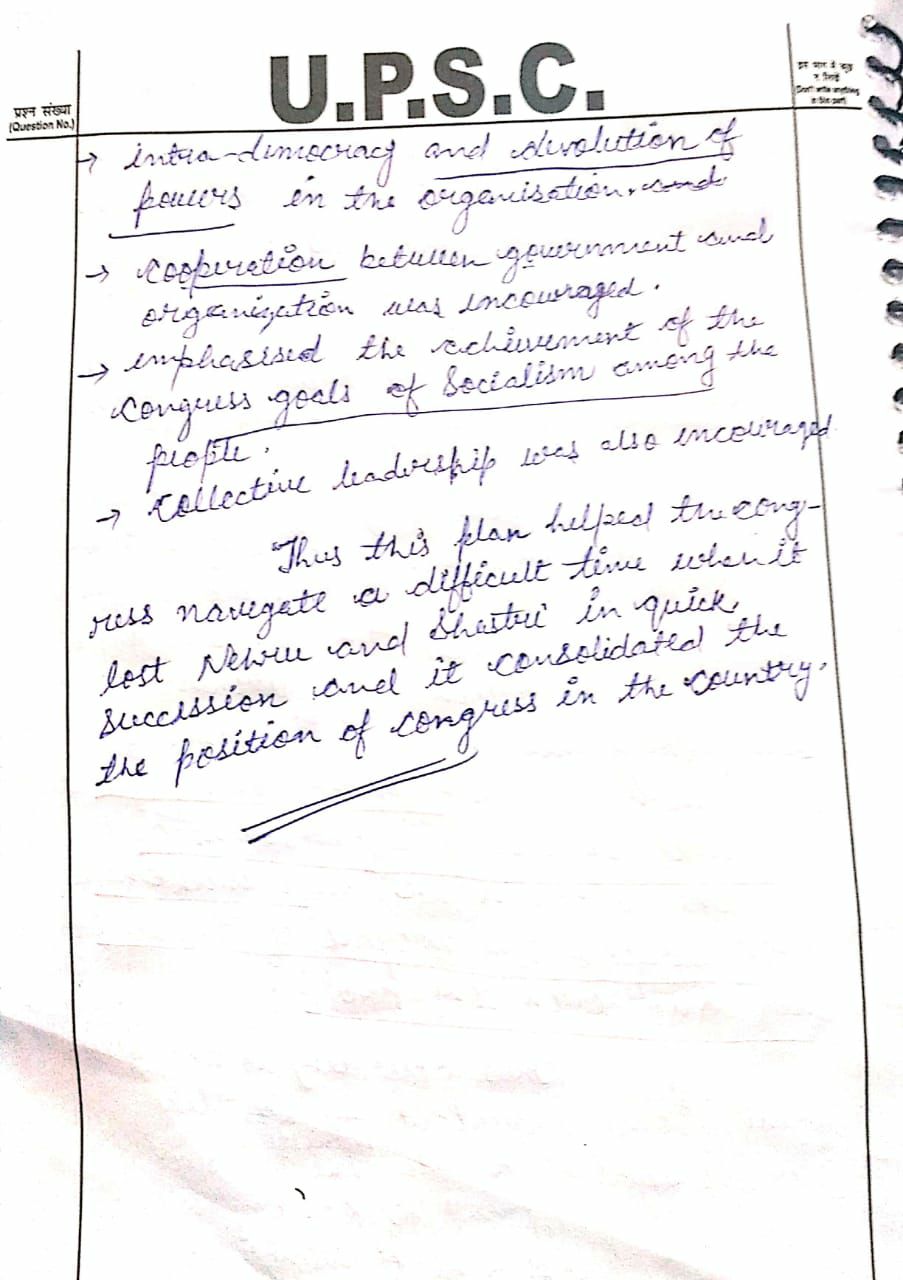 U.P.S.C.
प्रश्न संख्या
(Question No.)
(Don't write anything
in this part)
→ intra-democracy and devolution of
powers in the organisation. and
→ cooperation between government and
organization was encouraged.
→ emphasised the achievement of the
Congress goals of Socialism among the
people.
→ Collective leadership was also encouraged
Thus this plan helped the cong-
ress navegate a difficult time when it
lost Nehru and Shastri in quick
succession and it consolidated the
the position of congress in the country.